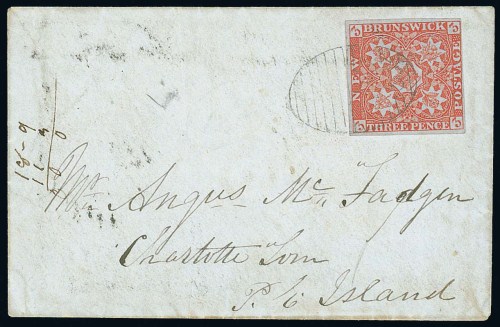 BRUNSWICK
NEW
POSTAGE
THREE PENCE
3
3
3
3
18-9
11-9
0
Mr. Angus Mc. Fadgen
Charlotte Town
P. E Island